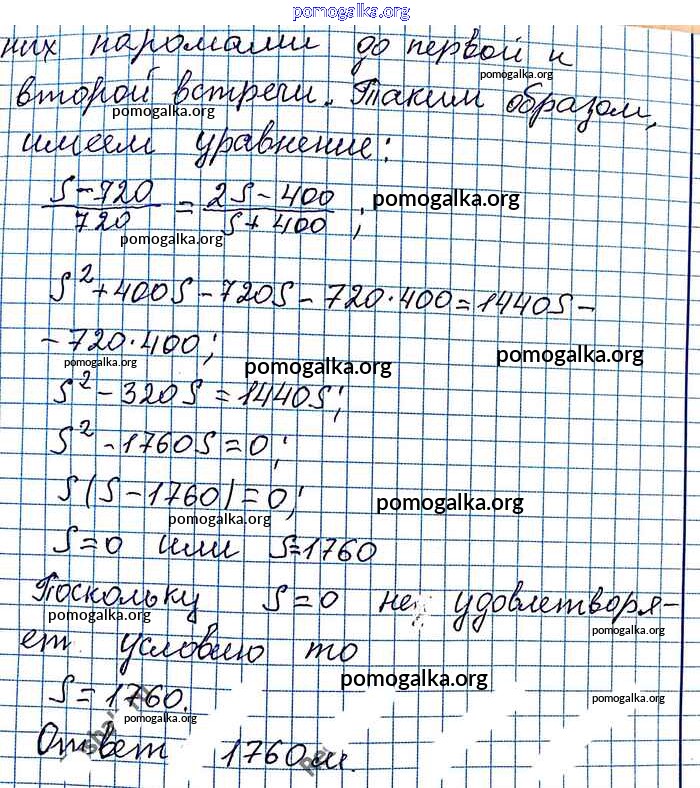 pomogalka.org
них паромами до первой и
pomogalka.org
второй встречи. Таким образом,
pomogalka.org
pomogalka.org
имеем уравнение:
(S-720)/720 = (2S-400)/(S+400);
pomogalka.org
pomogalka.org
S²+400S-720S-720·400=1440S-
-720·400;
pomogalka.org
pomogalka.org
pomogalka.org
S²-320S=1440S;
S²-1760S=0;
S(S-1760)=0;
pomogalka.org
pomogalka.org
S=0 или S=1760
Поскольку S=0 не удовлетворя-
pomogalka.org
pomogalka.org
ет условию то
pomogalka.org
S=1760.
pomogalka.org
pomogalka.org
Ответ 1760м.
pomogalka.org
pomogalka.org